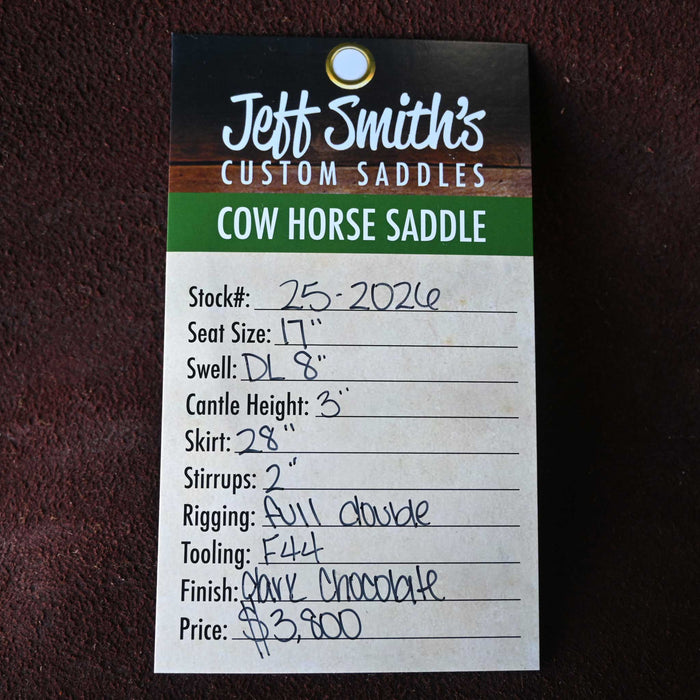 Jeff Smith's
CUSTOM SADDLES
COW HORSE SADDLE
Stock#: 25-2026
Seat Size: 17"
Swell: DL 8"
Cantle Height: 3"
Skirt: 28"
Stirrups: 2"
Rigging: full double
Tooling: F44
Finish: dark chocolate
Price: $3,800